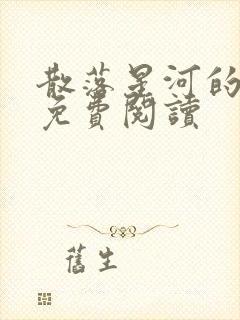 散落星河的
免費閱讀
舊生